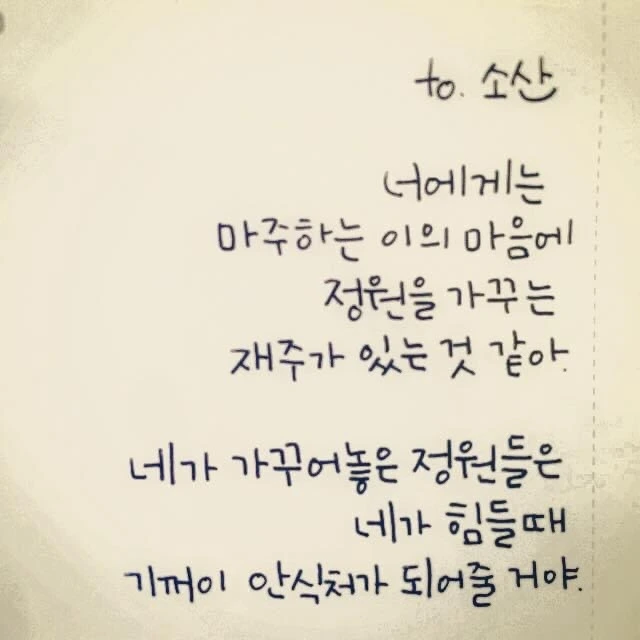 to. 소산
너에게는
마주하는 이의 마음에
정원을 가꾸는
재주가 있는 것 같아.
네가 가꾸어놓은 정원들은
네가 힘들때
기꺼이 안식처가 되어줄 거야.